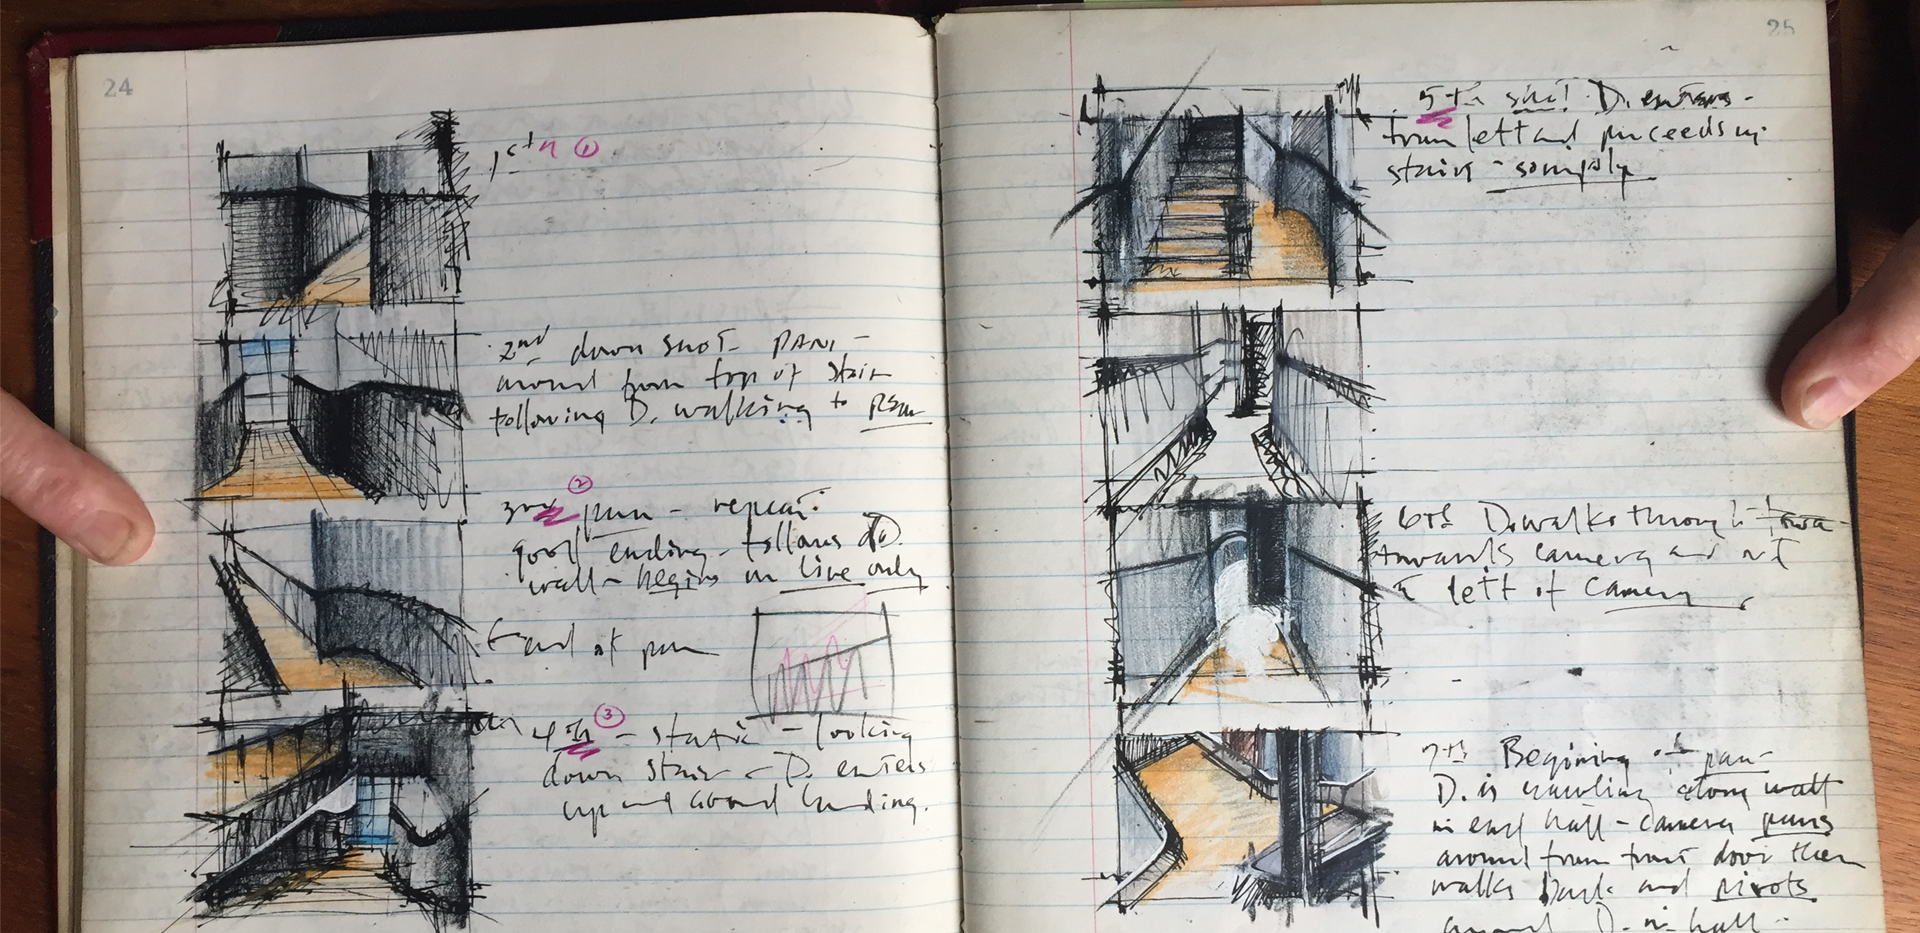 24
1st ①
2nd down shot - PAN -
around from top of stair
following D. walking to
②
3rd pan - repeat.
good ending - follows D
wall - begins on line only
← end of pan
③
4th - static - looking
down stair - D. enters
up and around landing.
25
5th shot D. enters -
from left and proceeds up
stairs - simply
6th D. walks through
towards camera and
left of camera
7th Begining of pan -
D. is crawling along wall
in hall - camera pans
around from front door then
walks back and pivots
around D. in hall -